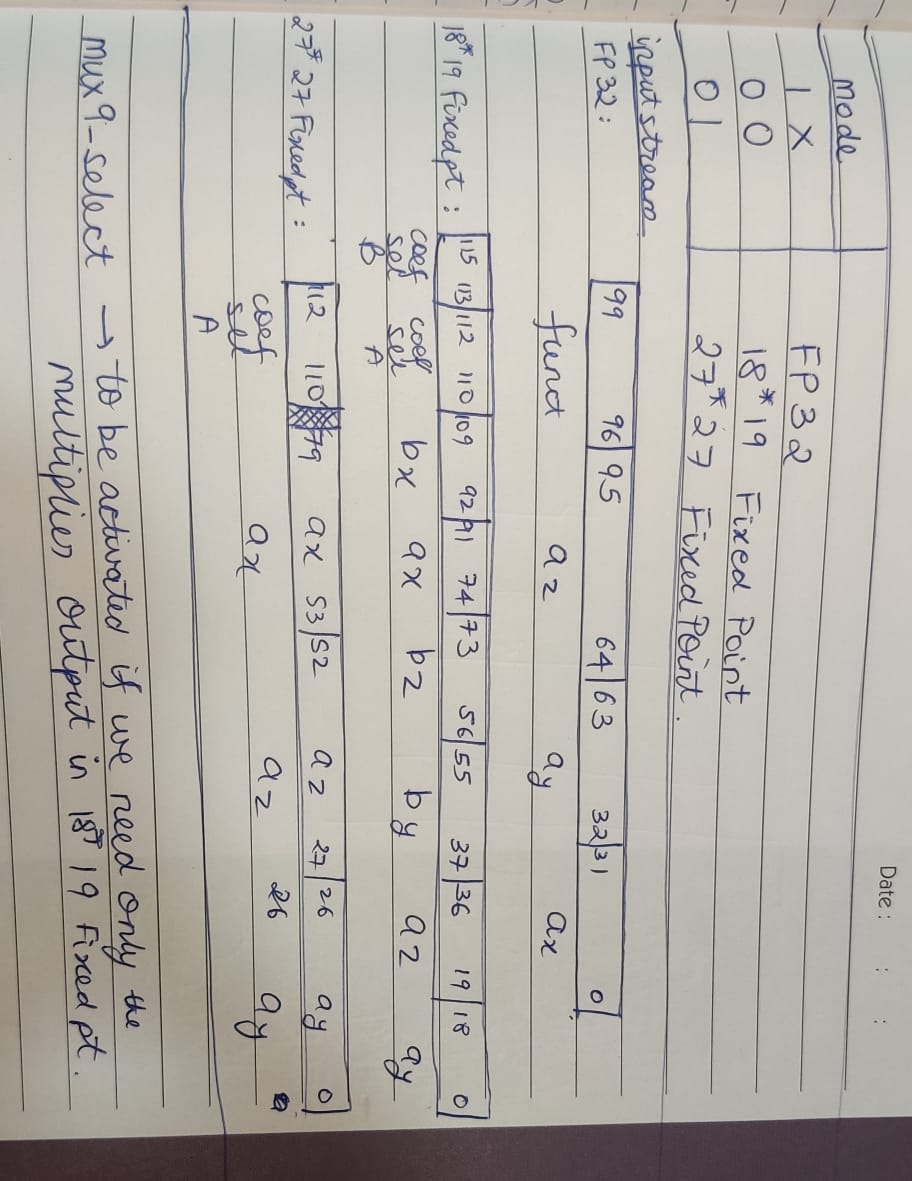 Date : : :
mode
1 X FP32
0 0 18*19 Fixed Point
0 1 27*27 Fixed Point.
input stream
FP32: 99 96 95 64 63 32 31 0
funct az ay ax
18*19 Fixedpt: 115 113 112 110 109 92 91 74 73 56 55 37 36 19 18 0
coef coeff bx ax bz by az ay
sel sel
B A
27*27 Fixedpt: 112 110 79 ax 53 52 az 27 26 ay 0
coef ax az 26 ay
sel
A
mux9-select → to be activated if we need only the
multiplier output in 18*19 Fixed pt.